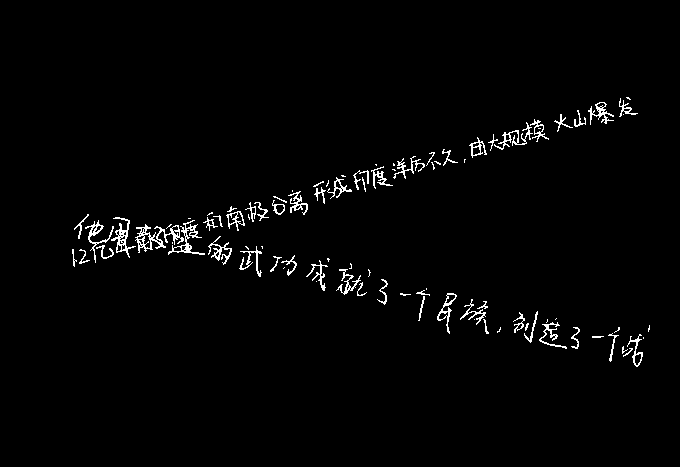 12亿年前印度和南极分离形成印度洋后不久,由大规模火山爆发
他军盖的武功成就了一个民族,创造了一个